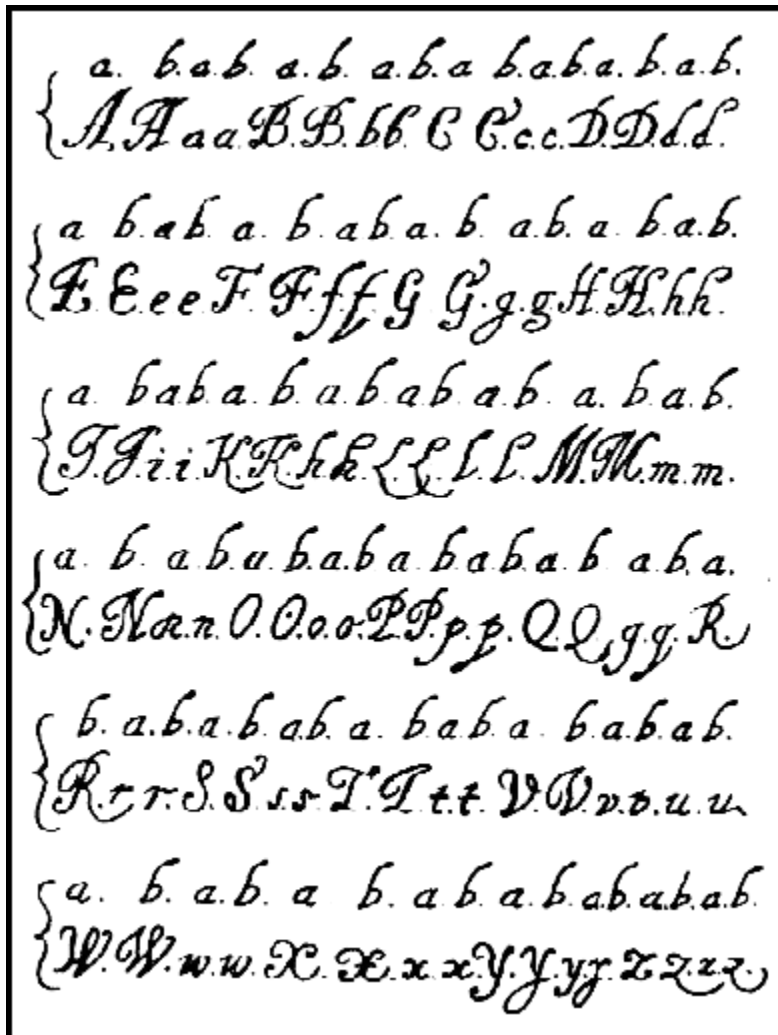 a. b. a. b. a. b. a. b. a b. a. b. a. b. a. b.
A. A a a. B. B. b b C C. c. c. D. D. d. d.
a b. a b. a. b. a b a. b. a. b. a. b. a. b.
E E e e F F f. f. G G. g. g H H. h h.
a. b a b. a. b. a b. a b. a b. a. b. a. b.
I. I. i i. K. K. k k L. L. l. l. M. M. m. m.
a. b. a b. a. b. a. b a b. a b. a. b a. b. a.
N. N n. n. O. O. o. o. P. P. p. p. Q. Q. q q. R.
b. a. b. a. b. a b. a. b a b. a. b. a. b. a b.
R. r r. S. S s. s. T. T t. t. V. V. v. v. u. u.
a. b. a. b. a b. a. b. a. b. a b. a. b. a. b.
W. W. w. w. X. X. x x Y. Y. y y. Z Z. z. z.